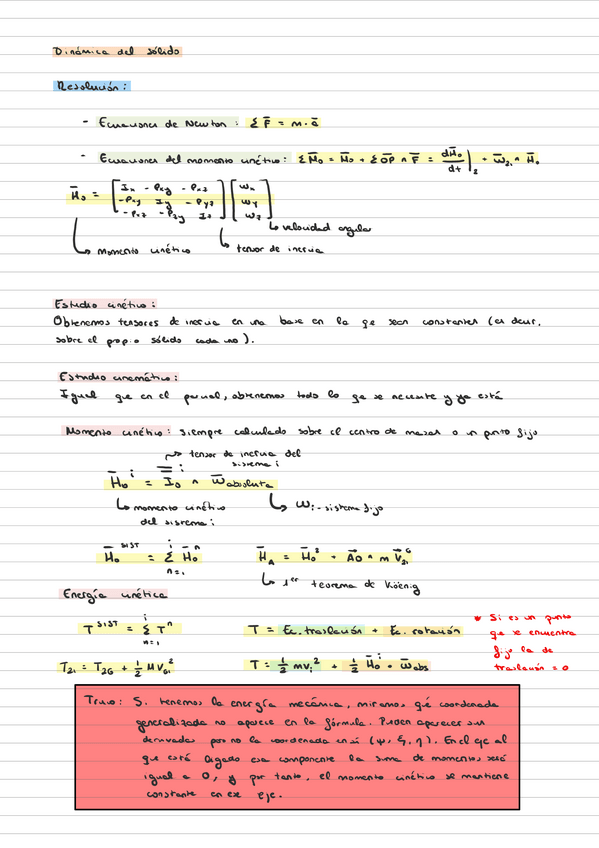 Dinámica del sólido
Resolución:
- Ecuaciones de Newton: Σ F̄ = m·ā
- Ecuaciones del momento cinético: Σ M̄₀ = M̄₀ + Σ OP̄ ∧ F̄ = dH̄₀/dt |₂ + ω̄₂₁ ∧ H̄₀
H̄₀ = [ Ix - Pxy - Pxz ; - Pxy Iy - Pyz ; - Pxz - Pzy Iz ] [ ωx ; ωy ; ωz ]
↳ velocidad angular
↳ momento cinético ↳ tensor de inercia
Estudio cinético:
Obtenemos tensores de inercia en una base en la qe sean constantes (es decir,
sobre el propio sólido cada uno).
Estudio cinemático:
Igual que en el parcial, obtenemos todo lo qe se necesite y ya está
Momento cinético: siempre calculado sobre el centro de masas o un punto fijo
↝ tensor de inercia del
sistema i
H̄₀ⁱ = I̿₀ⁱ ∧ ω̄absoluta
↳ momento cinético ↳ ωi-sistema fijo
del sistema i
H̄₀ˢᴵˢᵀ = Σⁱₙ₌₁ H̄₀ⁿ H̄A = H̄₀² + AŌ ∧ m V̄₂₁ᴳ
↳ 1er teorema de Köenig
Energía cinética
Tˢᴵˢᵀ = Σⁱₙ₌₁ Tⁿ T = Ec. traslación + Ec. rotación
* Si es un punto
qe se encuentra
fijo la de
traslación = 0
T₂₁ = T₂G + 1/2 M VG₁² T = 1/2 m vi² + 1/2 H̄₀ⁱ · ω̄abs
Truco: Si tenemos la energía mecánica, miramos qé coordenada
generalizada no aparece en la fórmula. Pueden aparecer sus
derivadas pero no la coordenada en sí (ψ, ξ, η). En el eje al
qe está ligado esa componente la suma de momentos será
igual a 0, y por tanto, el momento cinético se mantiene
constante en ese eje.